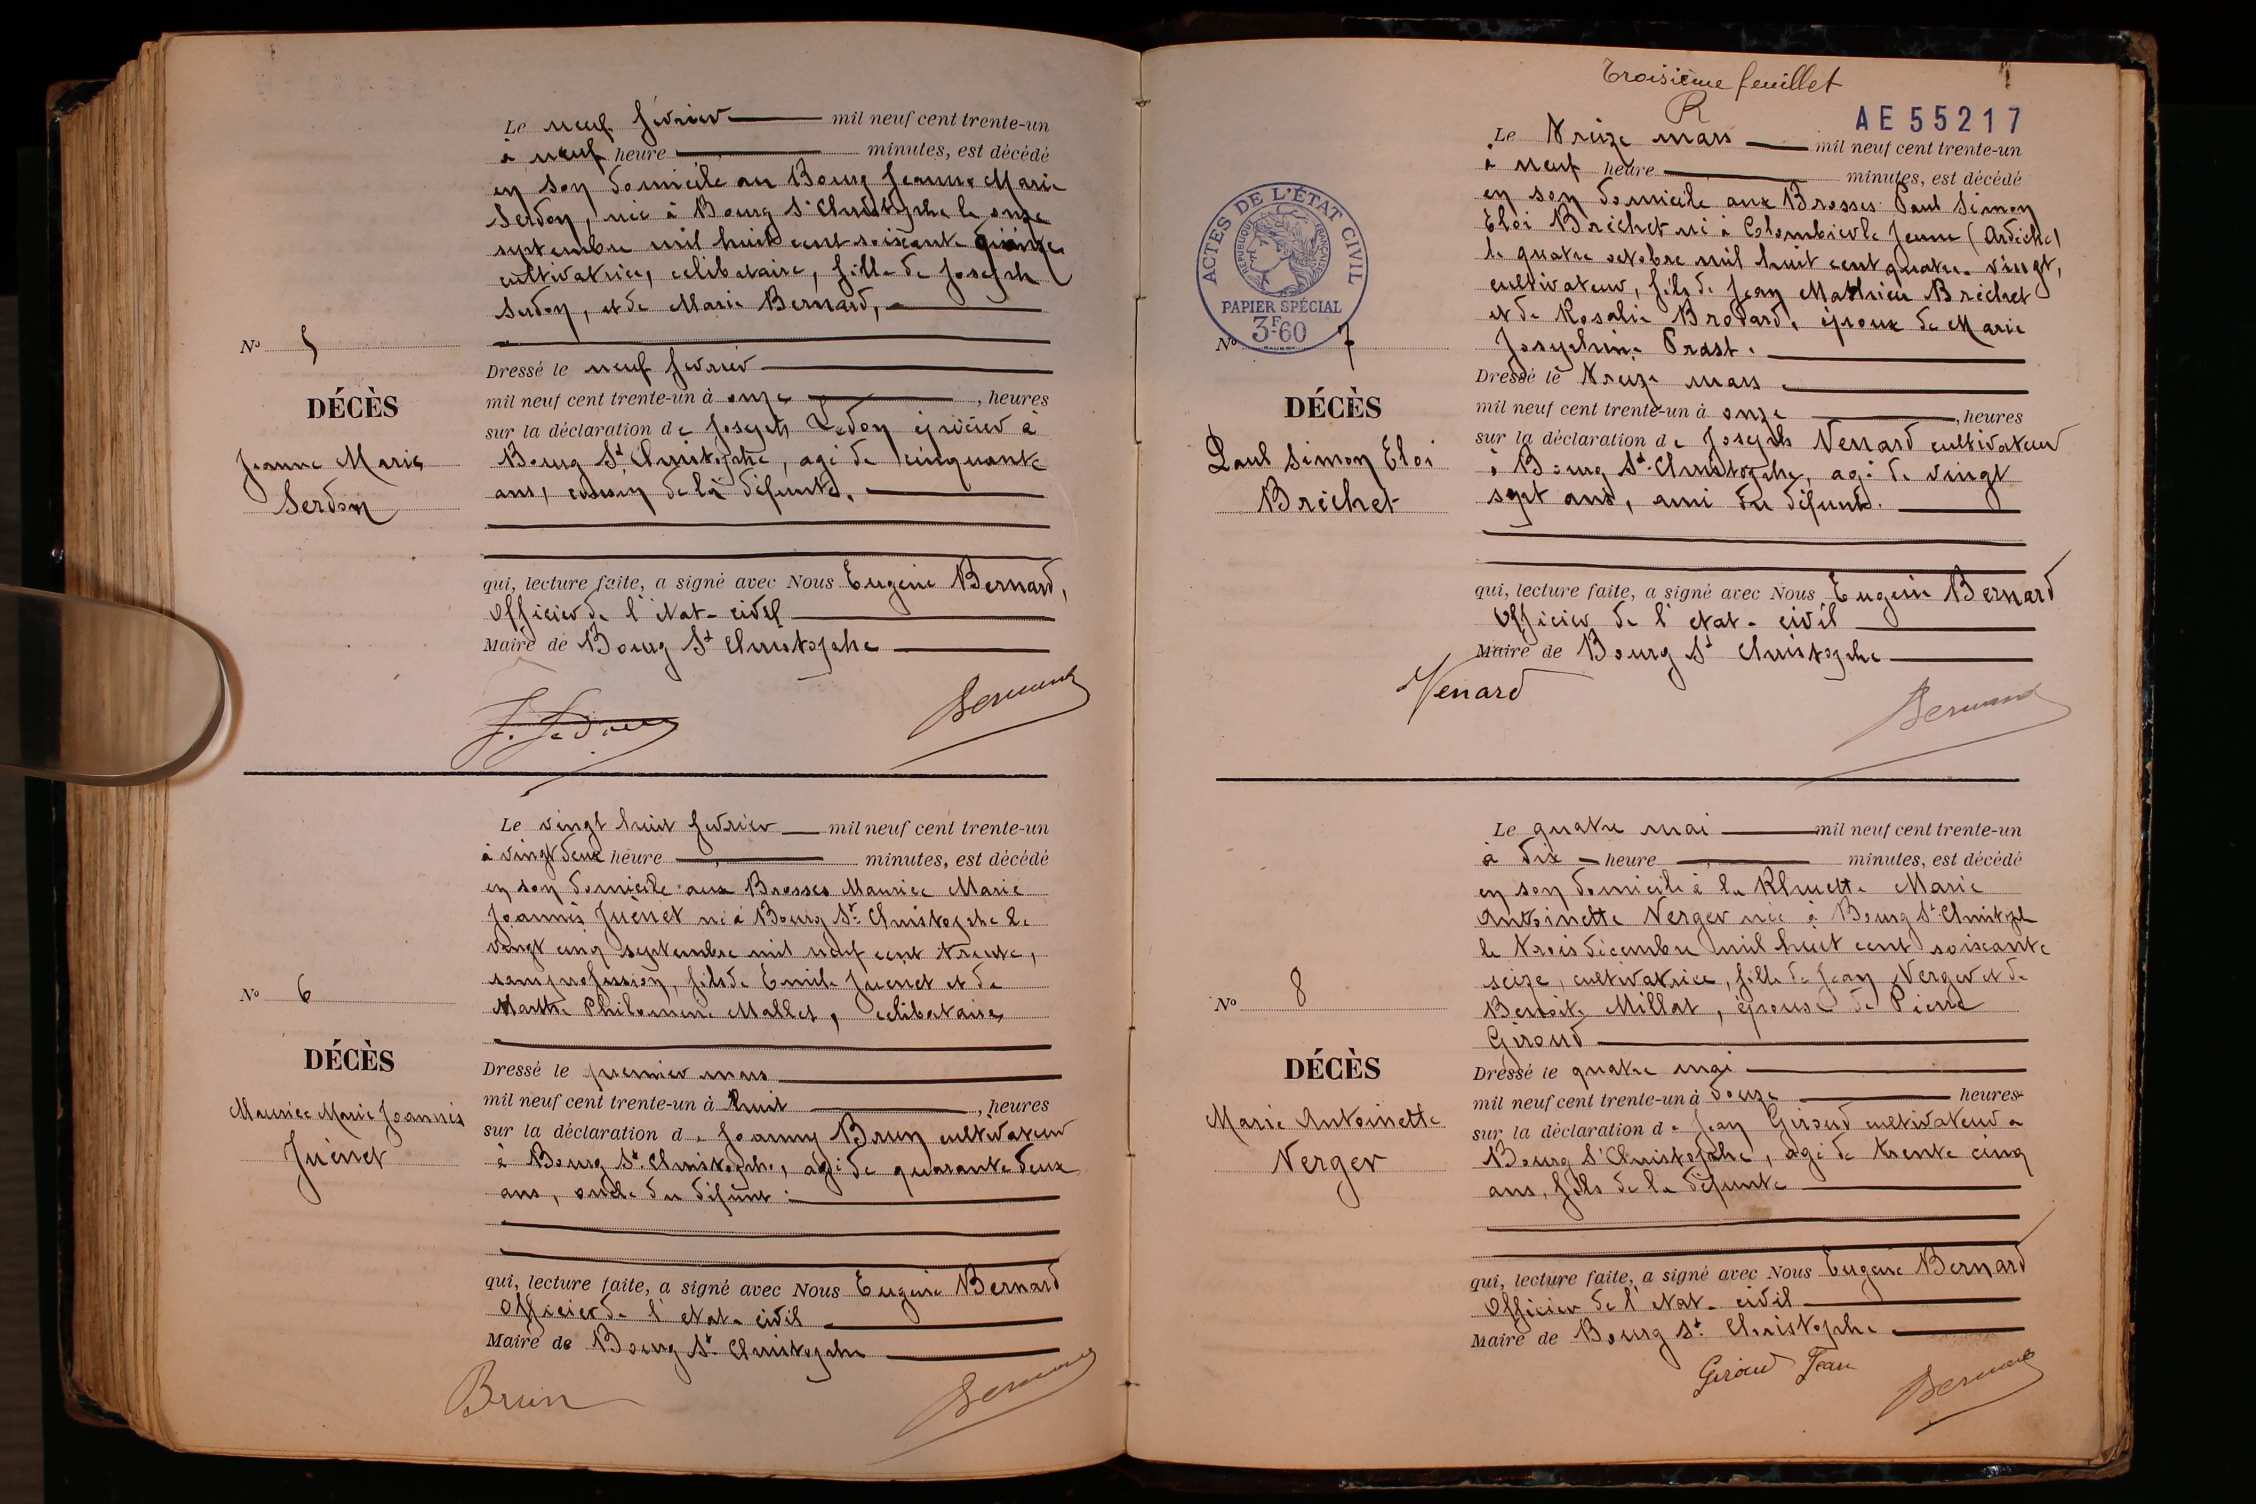 Le neuf février mil neuf cent trente-un
à neuf heure minutes, est décédé
en son domicile au Bourg Jeanne Marie
Serdon, née à Bourg St Christophe le onze
septembre mil huit cent soixante quinze
cultivatrice, celibataire, fille de Joseph
Serdon, et de Marie Bernard,
No 5
DÉCÈS
Jeanne Marie
Serdon
Dressé le neuf fevrier
mil neuf cent trente-un à onze, heures
sur la déclaration de Joseph épicier à
Bourg St Christophe, agé de cinquante
ans, cousin de la défunte.
qui, lecture faite, a signé avec Nous Eugène Bernard,
Officier de l'etat-civil
Maire de Bourg St Christophe
Bernard
Le vingt huit fevrier mil neuf cent trente-un
à vingt deux heure minutes, est décédé
en son domicile aux Brosses Maurice Marie
Joannès Juénet né à Bourg St Christophe le
vingt cinq septembre mil neuf cent trente,
sans profession, fils de Emile Juenet et de
Marthe Philomène Mallet, celibataire
No 6
DÉCÈS
Maurice Marie Joannès
Juénet
Dressé le premier mars
mil neuf cent trente-un à huit, heures
sur la déclaration de Joanny Brun cultivateur
à Bourg St Christophe, agé de quarante deux
ans, oncle du défunt.
qui, lecture faite, a signé avec Nous Eugène Bernard
Officier de l'etat-civil
Maire de Bourg St Christophe
Brun
Bernard
Troisième feuillet
R
AE 55217
Le treize mars mil neuf cent trente-un
à neuf heure minutes, est décédé
en son domicile aux Brosses Paul Simon
Eloi Bréchet né à Colombier le Jeune (Ardèche)
le quatre octobre mil huit cent quatre-vingt,
cultivateur, fils de Jean Mathieu Bréchet
et de Rosalie, époux de Marie
Josephine Prast.
ACTES DE L'ÉTAT CIVIL
REPUBLIQUE FRANÇAISE
PAPIER SPÉCIAL
3F60
No 7
DÉCÈS
Paul Simon Eloi
Bréchet
Dressé le treize mars
mil neuf cent trente-un à onze, heures
sur la déclaration de Joseph Venard cultivateur
à Bourg St Christophe, agé de vingt
sept ans, ami du défunt.
qui, lecture faite, a signé avec Nous Eugène Bernard
Officier de l'etat-civil
Maire de Bourg St Christophe
Venard
Bernard
Le quatre mai mil neuf cent trente-un
à dix heure minutes, est décédé
en son domicile à la Marie
Antoinette Verger née à Bourg St Christophe
le trois décembre mil huit cent soixante
seize, cultivatrice, fille de Jean Verger et de
Benoite Millat, épouse de Pierre
Giroud
No 8
DÉCÈS
Marie Antoinette
Verger
Dressé le quatre mai
mil neuf cent trente-un à douze heures
sur la déclaration de Jean Giroud cultivateur a
Bourg St Christophe, agé de trente cinq
ans, fils de la défunte
qui, lecture faite, a signé avec Nous Eugène Bernard
Officier de l'etat-civil
Maire de Bourg St Christophe
Giroud Jean
Bernard